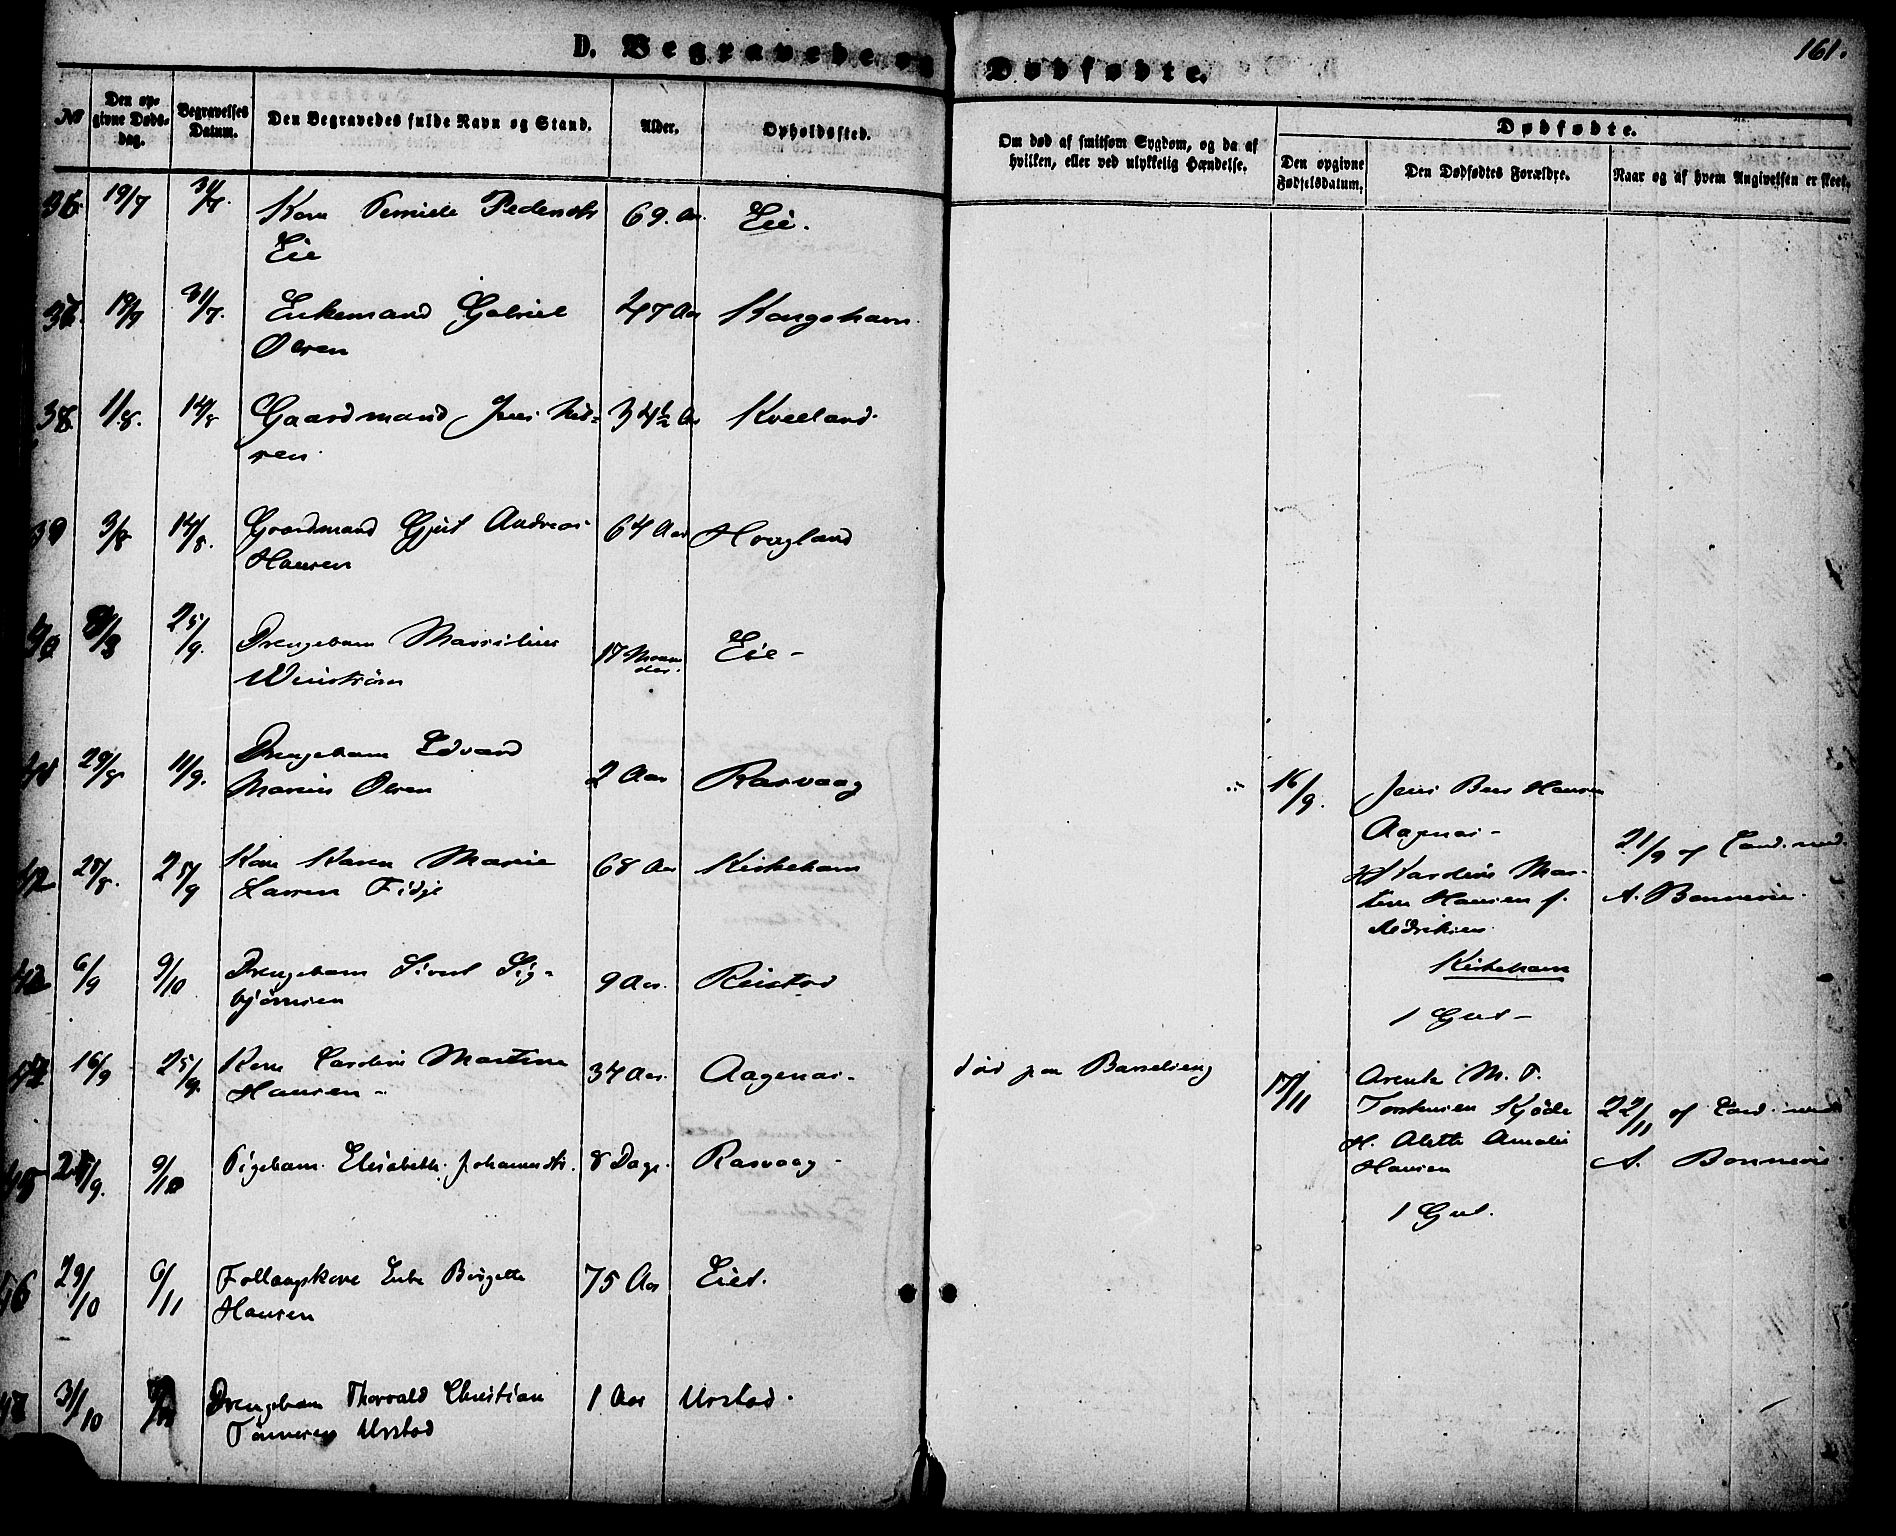 161.
D. Begravede og Dødfødte.
No
Den opgivne Dødsdag.
Begravelses Datum.
Den Begravedes fulde Navn og Stand.
Alder.
Opholdssted.
Om død af smitsom Sygdom, og da af hvilken, eller ved ulykkelig Hændelse.
Dødfødte.
Den opgivne Fødselsdatum.
Den Dødfødtes Forældre.
Naar og af hvem Angivelsen er skeet.
36 19/7 Kone Pernille Pedersdtr 69. Aar Eie.
Eie
37 19/7 31/7. Enkemand Gabriel 47 Aar Kongshavn
Olsen
38 1/8. 14/8 Gaardmand Jens 34½ Aar Kveeland
39 3/8 14/8. Gaardmand Gjert Andreas 64 Aar Hougland
Hansen
40 25/9. Drengebarn 17 Maaneder. Eie -
41 29/8 11/9. Drengebarn Edvard
Marius Olsen 2 Aar Rasvaag
42 28/8. 25/9 Kone Karen Marie 68 Aar Kirkehavn
Larsen Fidje
6/9 9/10 Drengebarn Sivert Sig-
bjørnsen 9 Aar. Reistad
44 16/9 25/9. Kone Caroline Martine 34 Aar. Aagenæs - død paa Barselseng
Hansen -
45 9/10 Pigebarn Elisabeth Johannsdtr. 8 Dage. Rasvaag -
46 29/10 6/11 Follaugskone Enke Birgette 75 Aar Eiet.
Hansen
47 31/10 Drengebarn Thorvald Christian 1 Aar Urstad.
Tønnesen Urstad
16/9. Jens Hansen
Aagenæs -
H Karoline Mar-
tine Hansen f.
Kirkehavn
1 Gut -
21/9 af Cand. med.
A. Bonnevie.
17/11 Arent M. T.
Torstensen Kjøde
H. Alette Amalie
Hansen
1 Gut.
22/11 af Cand. med
A. Bonnevie.